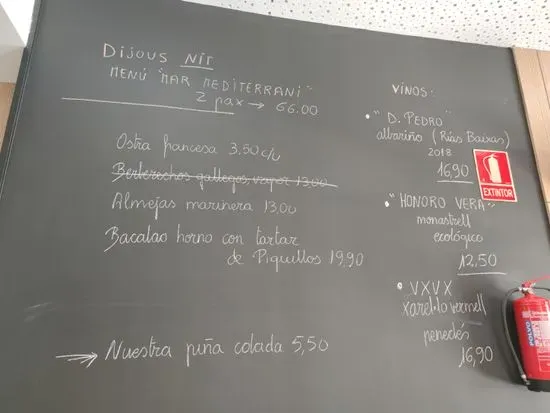 DIJOUS NIT
MENÚ "MAR MEDITERRANI"
2 pax → 66.00
Ostra francesa 3,50 c/u
Berberechos gallegos, vapor 13,00
Almejas marinera 13,00
Bacalao horno con tartar
de Piquillos 19,90
Nuestra piña colada 5,50
VINOS:
• "D. PEDRO"
albariño (Rías Baixas)
2018
16,90
• "HONORO VERA"
monastrell
ecológico
12,50
• VXVX
xarel·lo vermell
penedés
16,90
EXTINTOR
POLVO